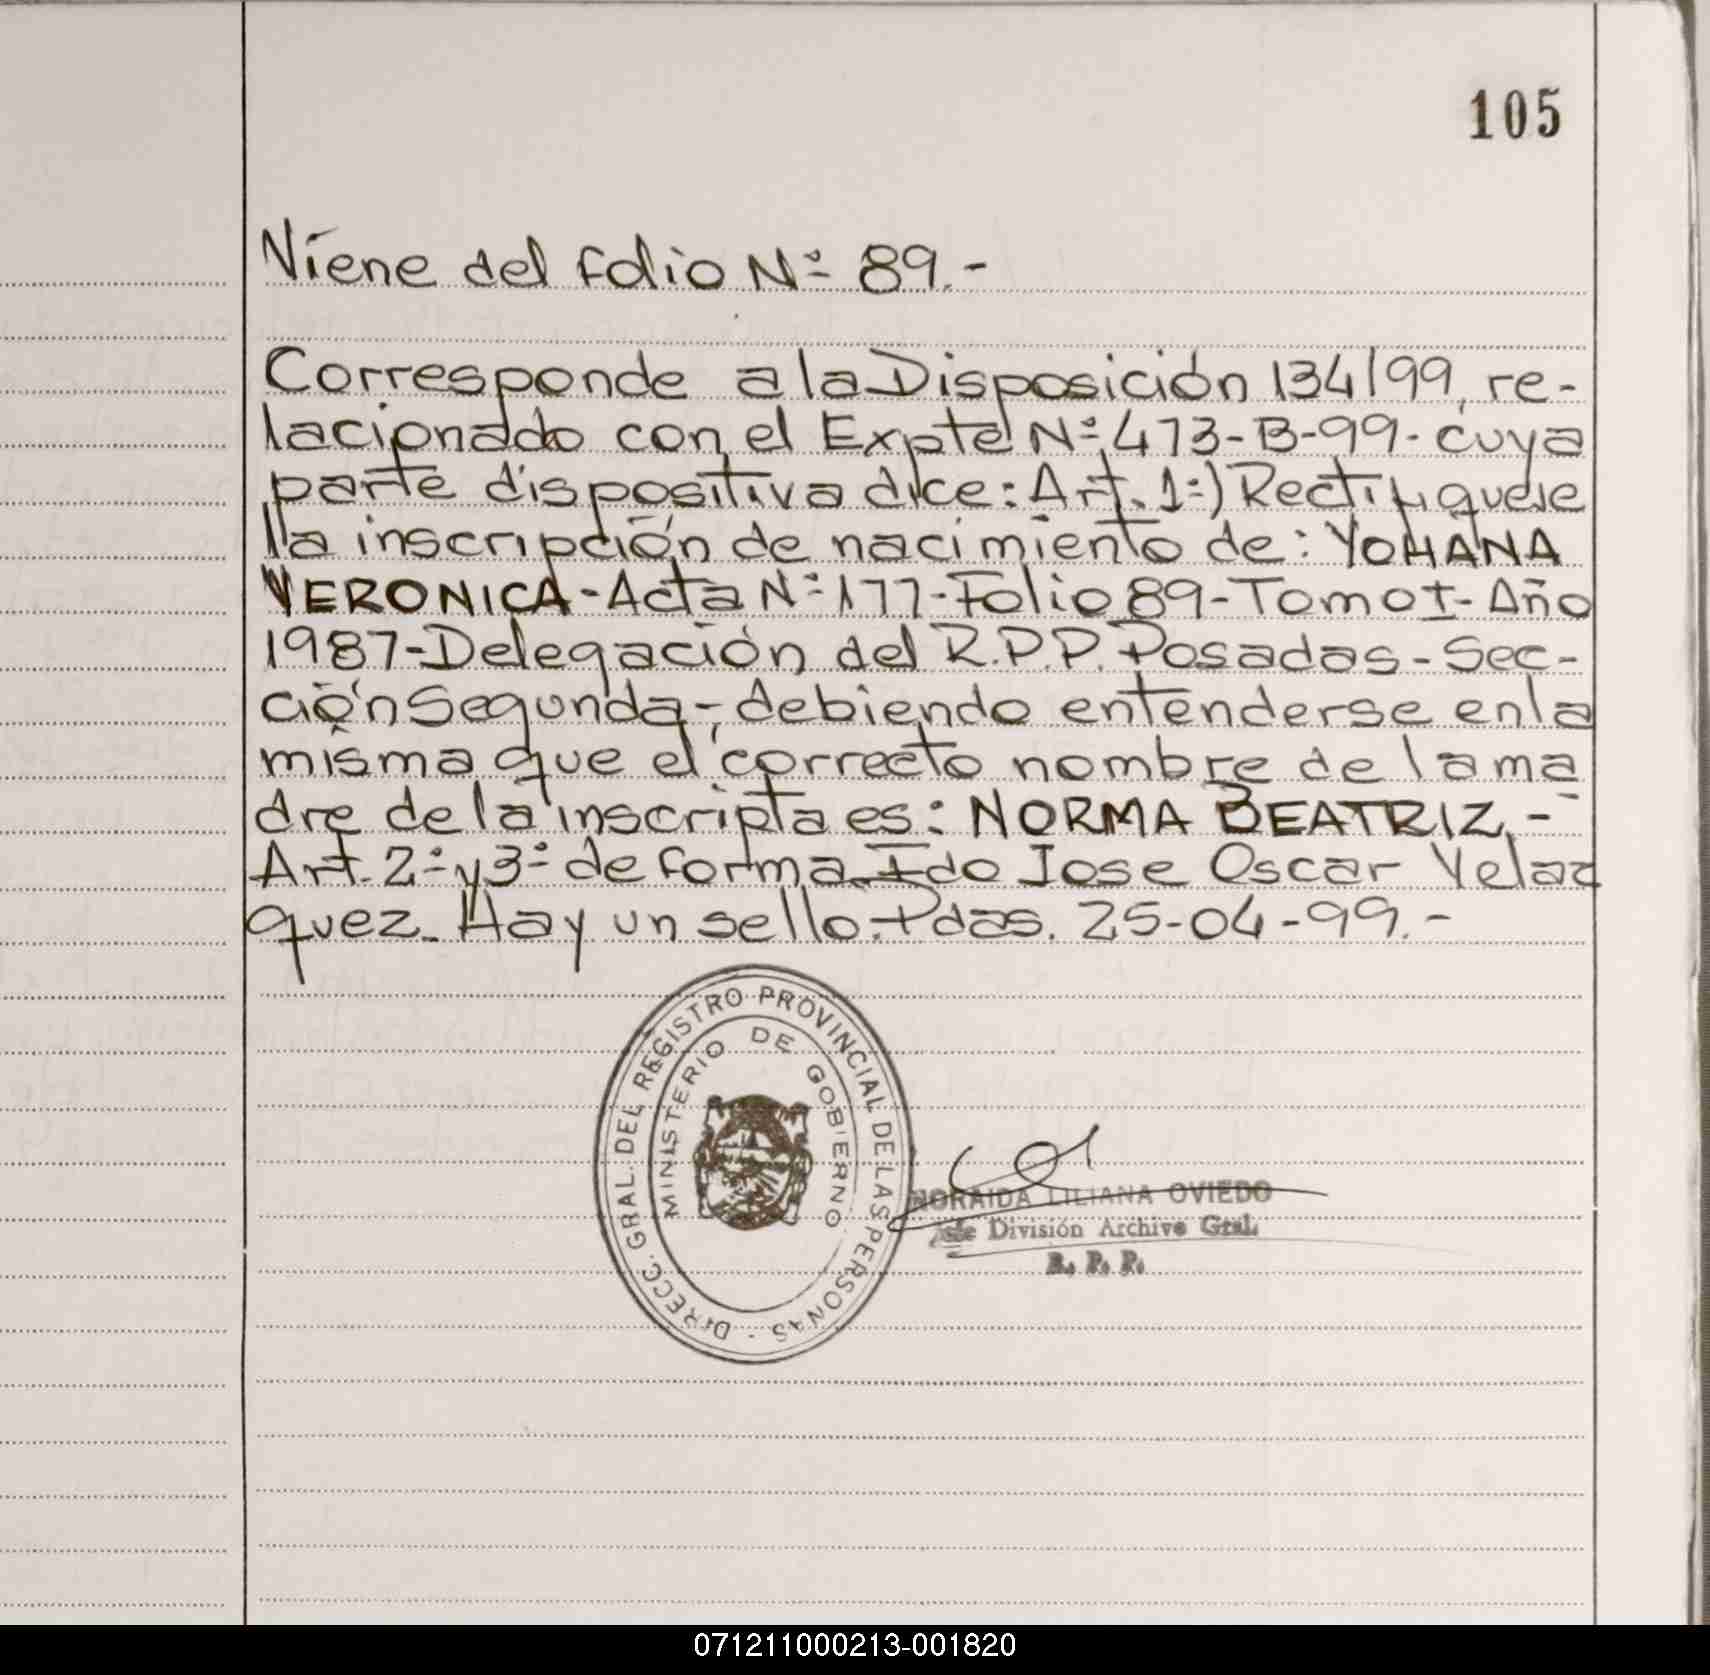 105
Viene del folio Nº 89.-
Corresponde a la Disposición 134/99, re-
lacionado con el Expte Nº 473-B-99- cuya
parte dispositiva dice: Art. 1º) Rectifiquese
la inscripción de nacimiento de: YOHANA
VERONICA-Acta Nº 177-Folio 89-Tomo I-Año
1987-Delegación del R.P.P. Posadas-Sec-
ción Segunda-, debiendo entenderse en la
misma que el correcto nombre de la ma
dre de la inscripta es: NORMA BEATRIZ.-
Art. 2º y 3º de forma. Fdo Jose Oscar Velaz
quez. Hay un sello. Pdas. 25-04-99.-
DIRECC. GRAL. DEL REGISTRO PROVINCIAL DE LAS PERSONAS -
MINISTERIO DE GOBIERNO
NORAIDA LILIANA OVIEDO
Jefe División Archivo Gral.
R. P. P.
071211000213-001820